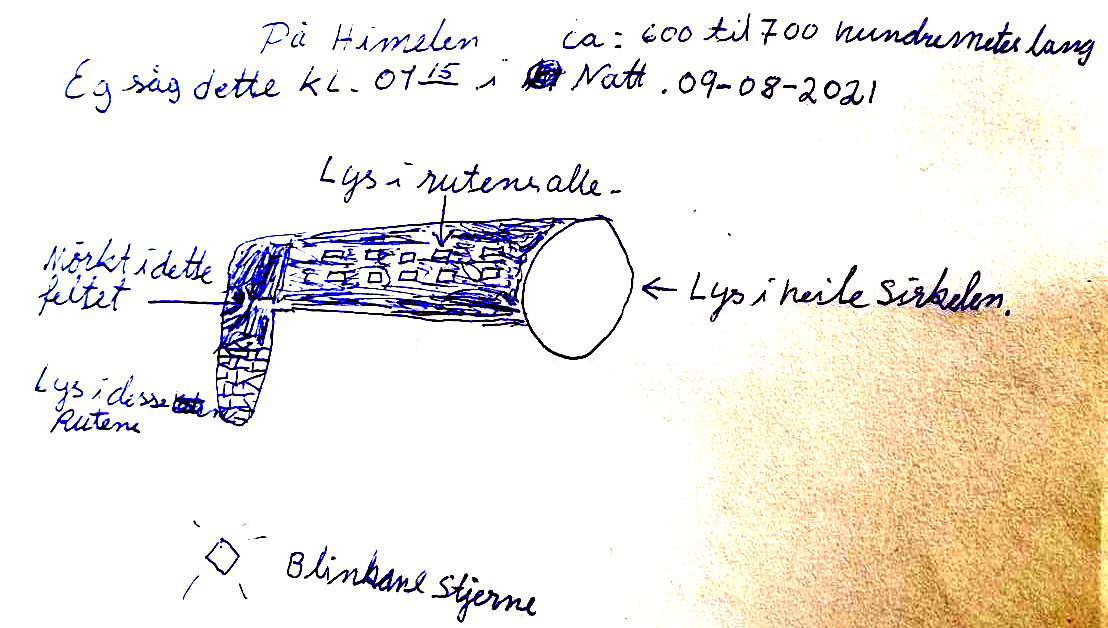 På Himelen ca: 600 til 700 hundremeter lang
Eg såg dette kl. 01 15 i Natt. 09-08-2021
Lys i rutene alle -
Mörkt i dette
feltet
Lys i heile Sirkelen.
Lys i desse
Rutene
Blinkane Stjerne